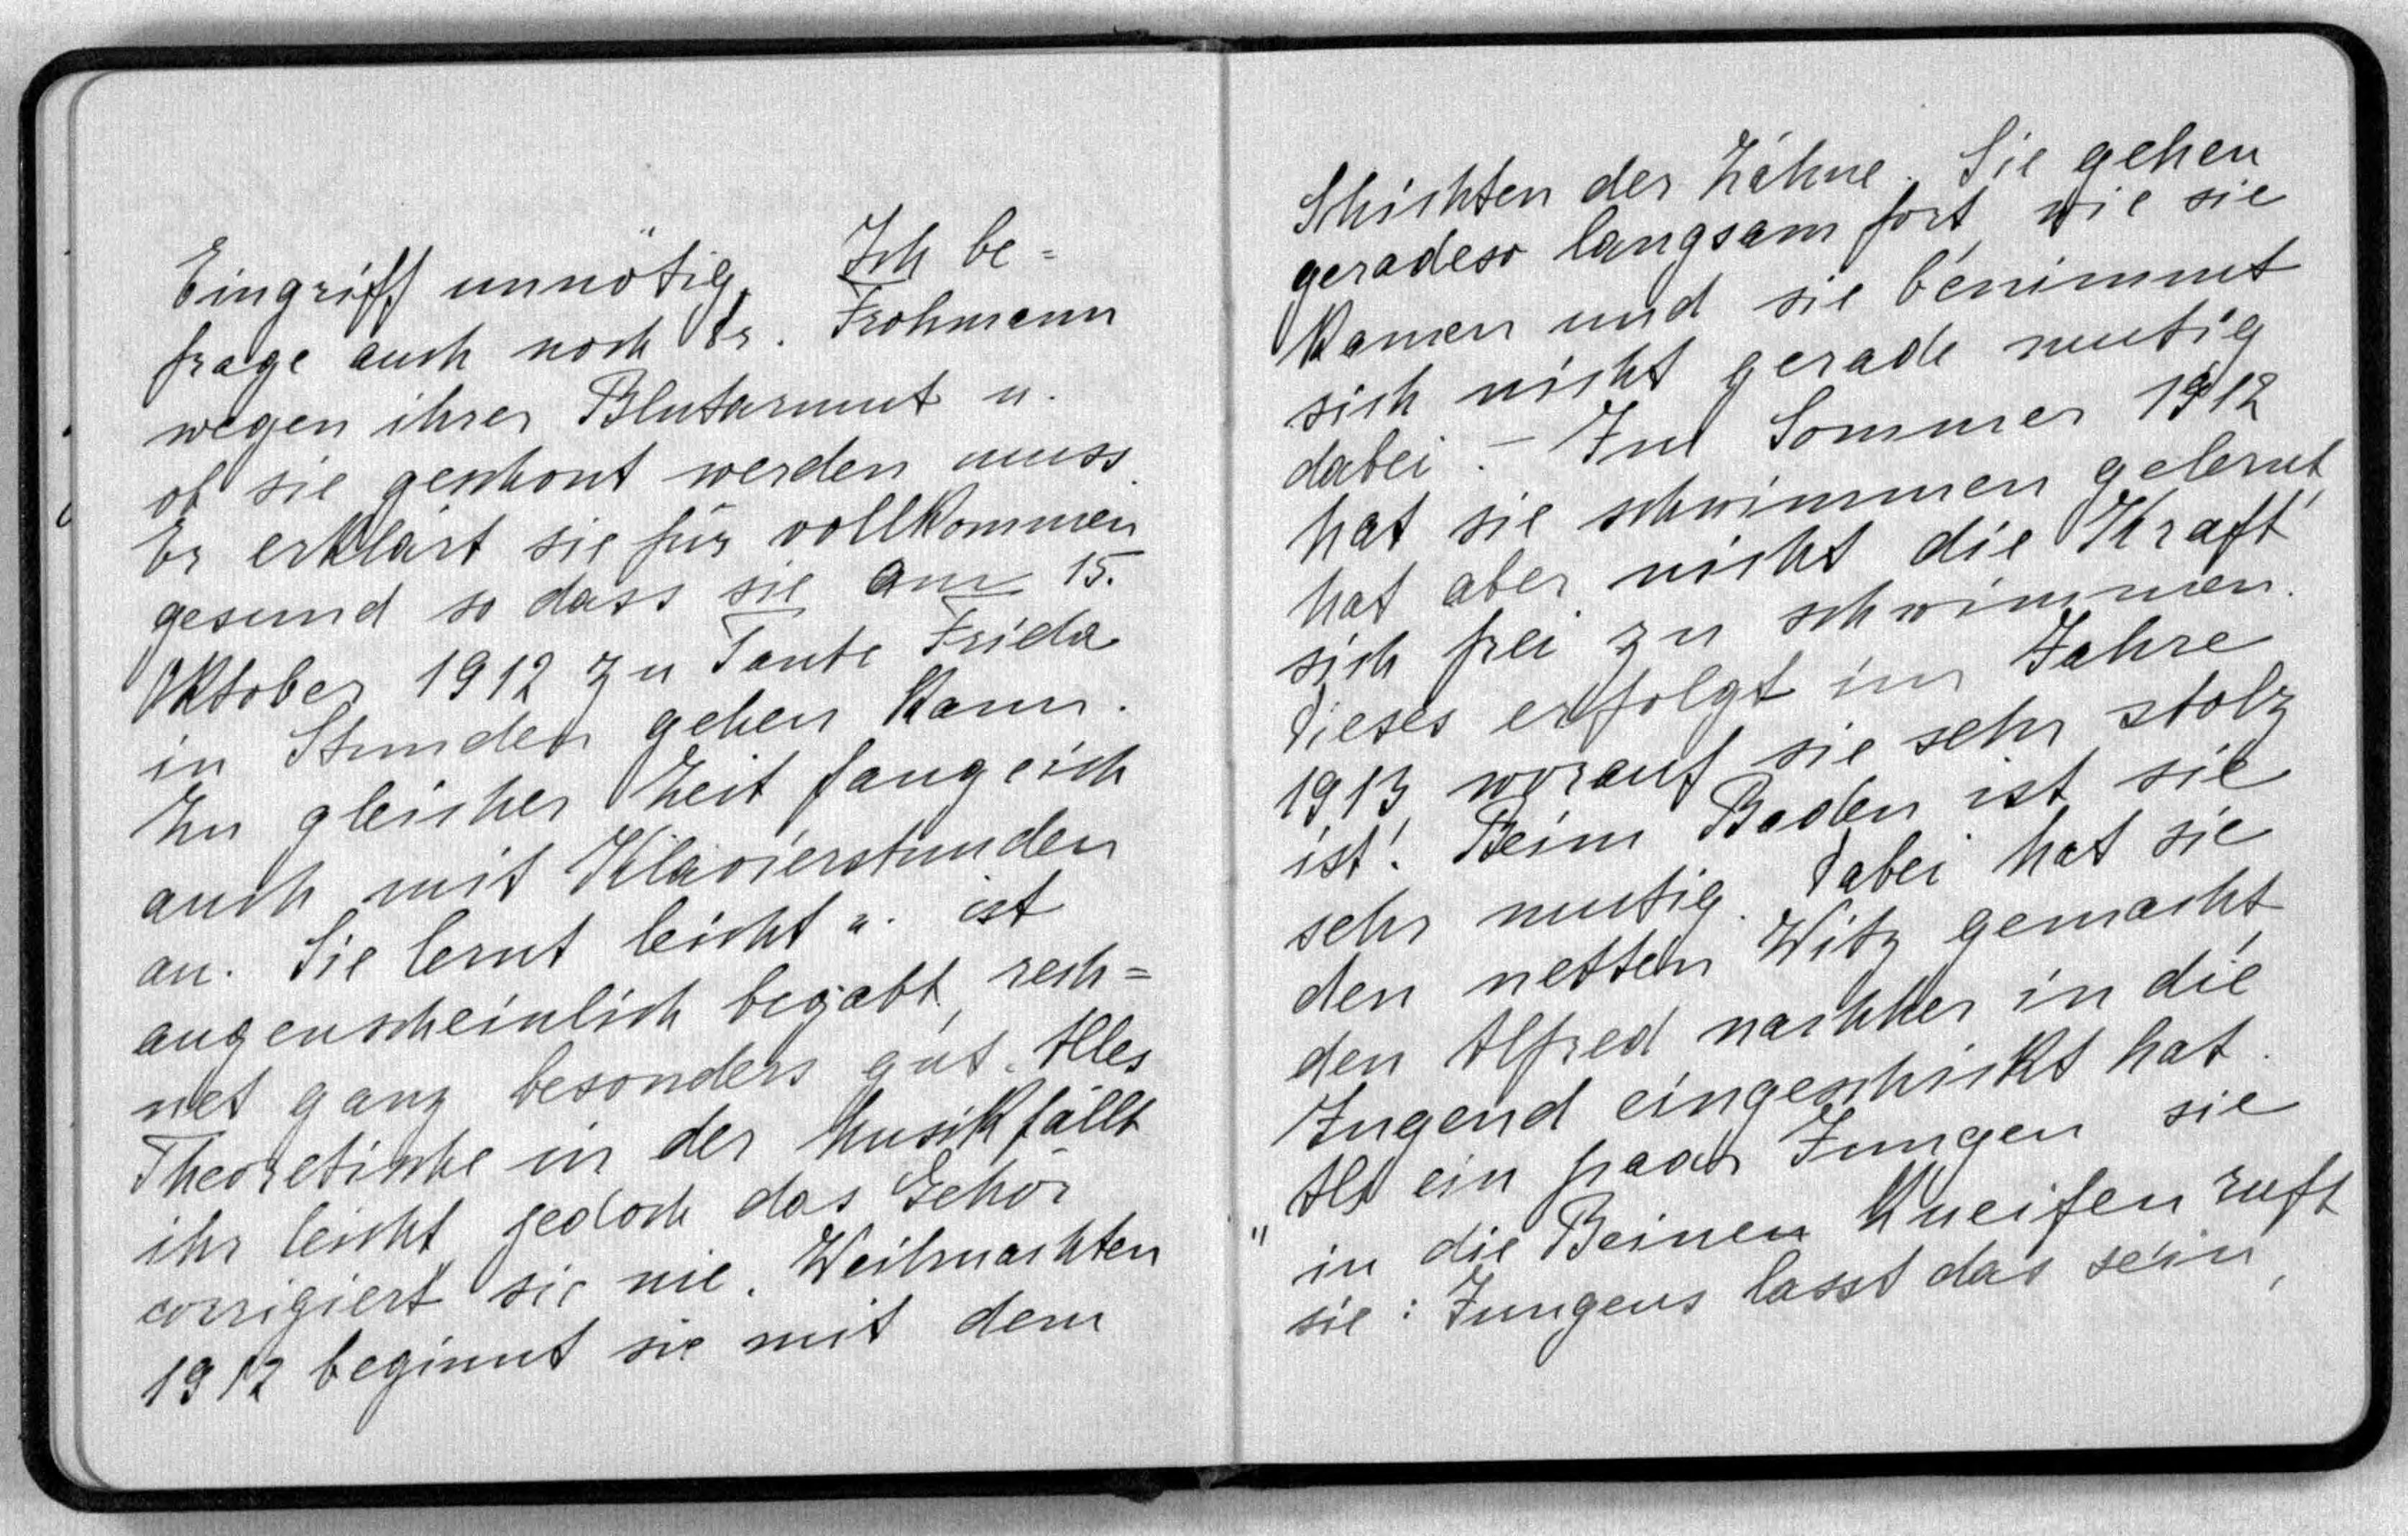 Eingriff unnötig. Ich be=
frage auch noch Dr. Frohmann
wegen ihrer Blutarmut u.
ob sie geschont werden muss.
Er erklärt sie für vollkommen
gesund so dass sie am 15.
Oktober 1912 zu Tante Frieda
in Stunden gehen kann.
Zu gleicher Zeit fange ich
auch mit Klavierstunden
an. Sie lernt leicht u. ist
augenscheinlich begabt, rech=
net ganz besonders gut. Alles
Theoretische in der Musik fällt
ihr leicht, jedoch das Gehör
corrigiert sie nie. Weihnachten
1912 beginnt sie mit dem
Schichten der Zähne. Sie gehen
geradeso langsam fort, wie sie
kamen und sie benimmt
sich nicht gerade mutig
dabei. – Im Sommer 1912
hat sie schwimmen gelernt,
hat aber nicht die Kraft
sich frei zu schwimmen.
Dieses erfolgt im Jahre
1913, worauf sie sehr stolz
ist! Beim Baden ist sie
sehr mutig. Dabei hat sie
den netten Witz gemacht,
den Alfred nachher in die
Jugend eingeschickt hat.
Als ein paar Jungen sie
in die Beinen kneifen ruft
sie: „Jungens lasst das sein,